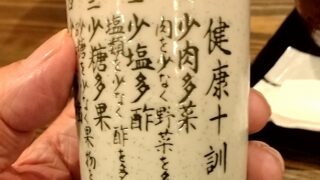 健康十訓
少肉多菜
肉を少なく野菜を多
少塩多酢
塩類を少なく酢を多
少糖多果
を少なく果物を